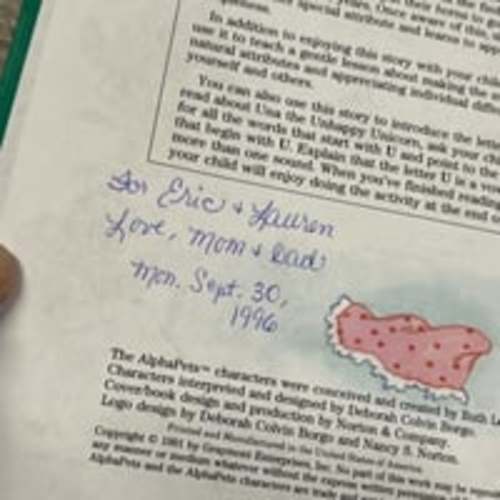 special attribute and learns to
In addition to enjoying this story with your
use it to teach a gentle lesson about making the
natural attributes and appreciating individual
yourself and others.
You can also use this story to introduce the
read about Una the Unhappy Unicorn, ask your
for all the words that start with U and point to the
that begin with U. Explain that the letter U is a
more than one sound. When you've finished reading
your child will enjoy doing the activity at the end
For Eric & Lauren
Love, Mom & Dad
Mon. Sept. 30,
1996
The AlphaPets™ characters were conceived and created by Ruth
Characters interpreted and designed by Deborah Colvin Borgo.
Cover/book design and production by Norton & Company.
Logo design by Deborah Colvin Borgo and Nancy S. Norton.
Printed and Manufactured in the United States of America
Copyright © 1991 by Grapevine Enterprises, Inc. No part of this work may be
any manner or medium whatsoever without the express written
AlphaPets and the AlphaPets characters are trade